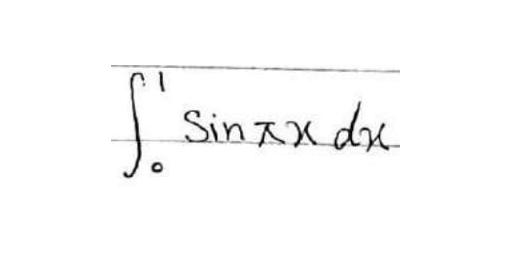 ∫₀¹ sin πx dx